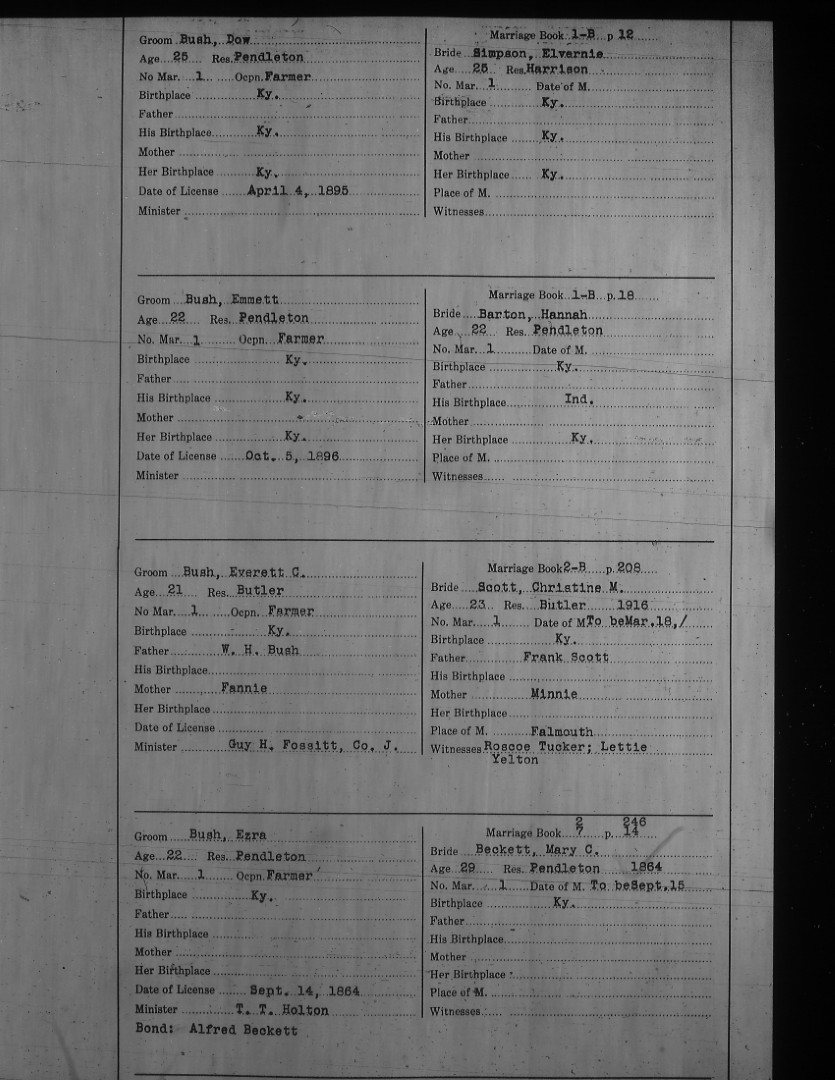 Groom Bush, Dow
Age 25 Res. Pendleton
No Mar. 1 Ocpn. Farmer
Birthplace Ky.
Father
His Birthplace Ky.
Mother
Her Birthplace Ky.
Date of License April 4, 1895
Minister
Marriage Book 1-B p 12
Bride Simpson, Elvernie
Age 25 Res. Harrison
No. Mar. 1 Date of M.
Birthplace Ky.
Father
His Birthplace Ky.
Mother
Her Birthplace Ky.
Place of M.
Witnesses
Groom Bush, Emmett
Age 22 Res. Pendleton
No. Mar. 1 Ocpn. Farmer
Birthplace Ky.
Father
His Birthplace Ky.
Mother
Her Birthplace Ky.
Date of License Oct. 5, 1896
Minister
Marriage Book 1-B p. 18
Bride Barton, Hannah
Age 22 Res. Pendleton
No. Mar. 1 Date of M.
Birthplace Ky.
Father
His Birthplace Ind.
Mother
Her Birthplace Ky.
Place of M.
Witnesses
Groom Bush, Everett C.
Age 21 Res. Butler
No Mar. 1 Ocpn. Farmer
Birthplace Ky.
Father W. H. Bush
His Birthplace
Mother Fannie
Her Birthplace
Date of License
Minister Guy H. Fossitt, Co. J.
Marriage Book 2-B p. 208
Bride Scott, Christine M.
Age 23 Res. Butler 1916
No. Mar. 1 Date of M To be Mar. 18,/
Birthplace Ky.
Father Frank Scott
His Birthplace
Mother Minnie
Her Birthplace
Place of M. Falmouth
Witnesses Roscoe Tucker; Lettie
Yelton
Groom Bush, Ezra
Age 22 Res. Pendleton
No. Mar. 1 Ocpn. Farmer
Birthplace Ky.
Father
His Birthplace
Mother
Her Birthplace
Date of License Sept. 14, 1864
Minister T. T. Holton
Bond: Alfred Beckett
2 246
Marriage Book 7 p. 14
Bride Beckett, Mary C.
Age 29 Res. Pendleton 1864
No. Mar. 1 Date of M. To be Sept. 15
Birthplace Ky.
Father
His Birthplace
Mother
Her Birthplace
Place of M.
Witnesses